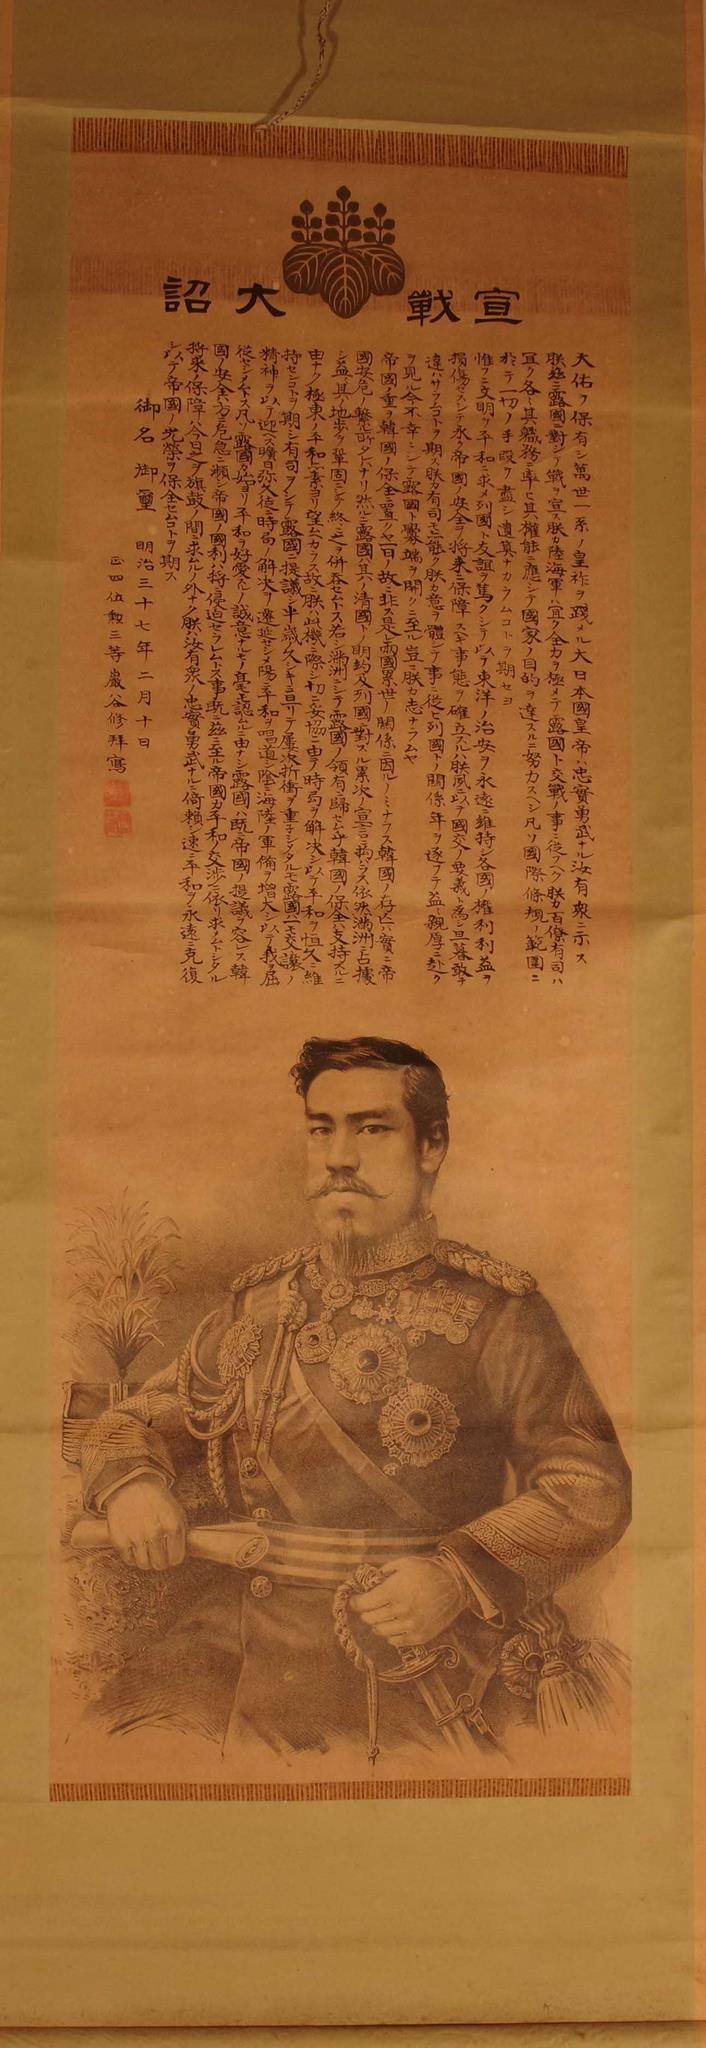 宣戰大詔
天佑ヲ保有シ萬世一系ノ皇祚ヲ踐メル大日本國皇帝ハ忠實勇武ナル汝有衆ニ示ス
朕玆ニ露國ニ對シテ戰ヲ宣ス朕カ陸海軍ハ宜ク全力ヲ極メテ露國ト交戰ノ事ニ從フヘク朕カ百僚有司ハ
宜ク各〻其職務ニ率ヒ其權能ニ應シテ國家ノ目的ヲ達スルニ努力スヘシ凡ソ國際條規ノ範圍ニ
於テ一切ノ手段ヲ盡シ遺算ナカラムコトヲ期セヨ
惟フニ文明ヲ平和ニ求メ列國ト友誼ヲ篤クシテ以テ東洋ノ治安ヲ永遠ニ維持シ各國ノ權利利益ヲ
損傷セスシテ永ク帝國ノ安全ヲ將來ニ保障スヘキ事態ヲ確立スルハ朕夙ニ以テ國交ノ要義ト爲シ旦暮敢テ
違ハサラムコトヲ期ス朕カ有司モ亦能ク朕カ意ヲ體シテ事ニ從ヒ列國トノ關係年ヲ逐フテ益〻親厚ニ赴ク
ヲ見ル今不幸ニシテ露國ト釁端ヲ開クニ至ル豈ニ朕カ志ナラムヤ
帝國ノ重ヲ韓國ノ保全ニ置クヤ一日ノ故ニ非ス是レ兩國累世ノ關係ニ因ルノミナラス韓國ノ存亡ハ實ニ帝
國安危ノ繫ル所タレハナリ然ルニ露國ハ其ノ清國トノ明約及列國ニ對スル累次ノ宣言ニ拘ハラス依然滿洲ニ占據
シ益〻其ノ地步ヲ鞏固ニシテ終ニ之ヲ併呑セムトス若シ滿洲ニシテ露國ノ領有ニ歸セム乎韓國ノ保全ハ支持スルニ
由ナク極東ノ平和亦素ヨリ望ムヘカラス故ニ朕ハ此ノ機ニ際シ切ニ妥協ニ由テ時局ヲ解決シ以テ平和ヲ恒久ニ維
持セムコトヲ期シ有司ヲシテ露國ニ提議シ半歲ノ久シキニ亘リテ屢次折衝ヲ重ネシメタルモ露國ハ一モ交讓ノ
精神ヲ以テ迎ヘス曠日彌久徒ニ時局ノ解決ヲ遷延セシメ陽ニ平和ヲ唱道シ陰ニ海陸ノ軍備ヲ增大シ以テ我ヲ屈
從セシメムトス凡ソ露國カ始ヨリ平和ヲ好愛スルノ誠意ナルモノ毫モ認ムルニ由ナシ露國ハ既ニ帝國ノ提議ヲ容レス韓
國ノ安全ハ方ニ危急ニ瀕シ帝國ノ國利ハ將ニ侵迫セラレムトス事既ニ玆ニ至ル帝國カ平和ノ交渉ニ依リ求メムトシタル
將來ノ保障ハ今日之ヲ旗鼓ノ間ニ求ムルノ外ナシ朕ハ汝有衆ノ忠實勇武ナルニ倚賴シ速ニ平和ヲ永遠ニ克復
シ以テ帝國ノ光榮ヲ保全セムコトヲ期ス
御名御璽 明治三十七年二月十日
正四位勲三等巖谷修拜寫